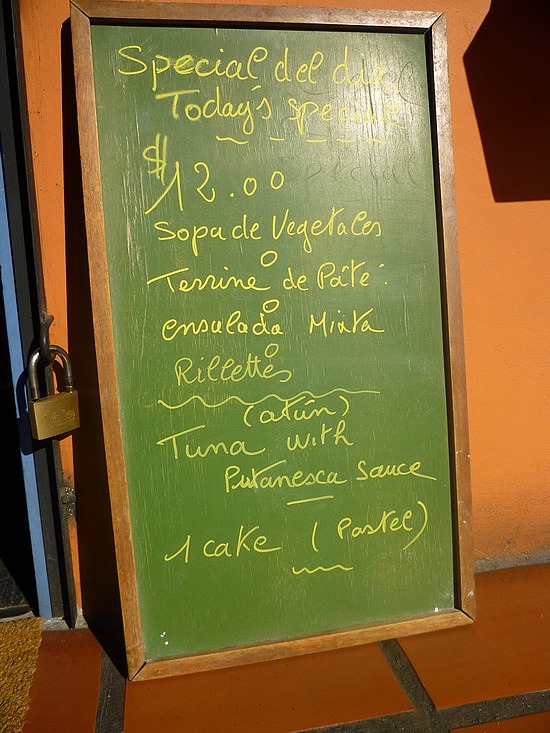 Special del dia
Today's special
$12.00
Sopa de Vegetales
o
Terrine de Pâté.
o
ensalada Mixta
o
Rillettes
(atún)
Tuna with
Putanesca sauce
1 cake (Pastel)